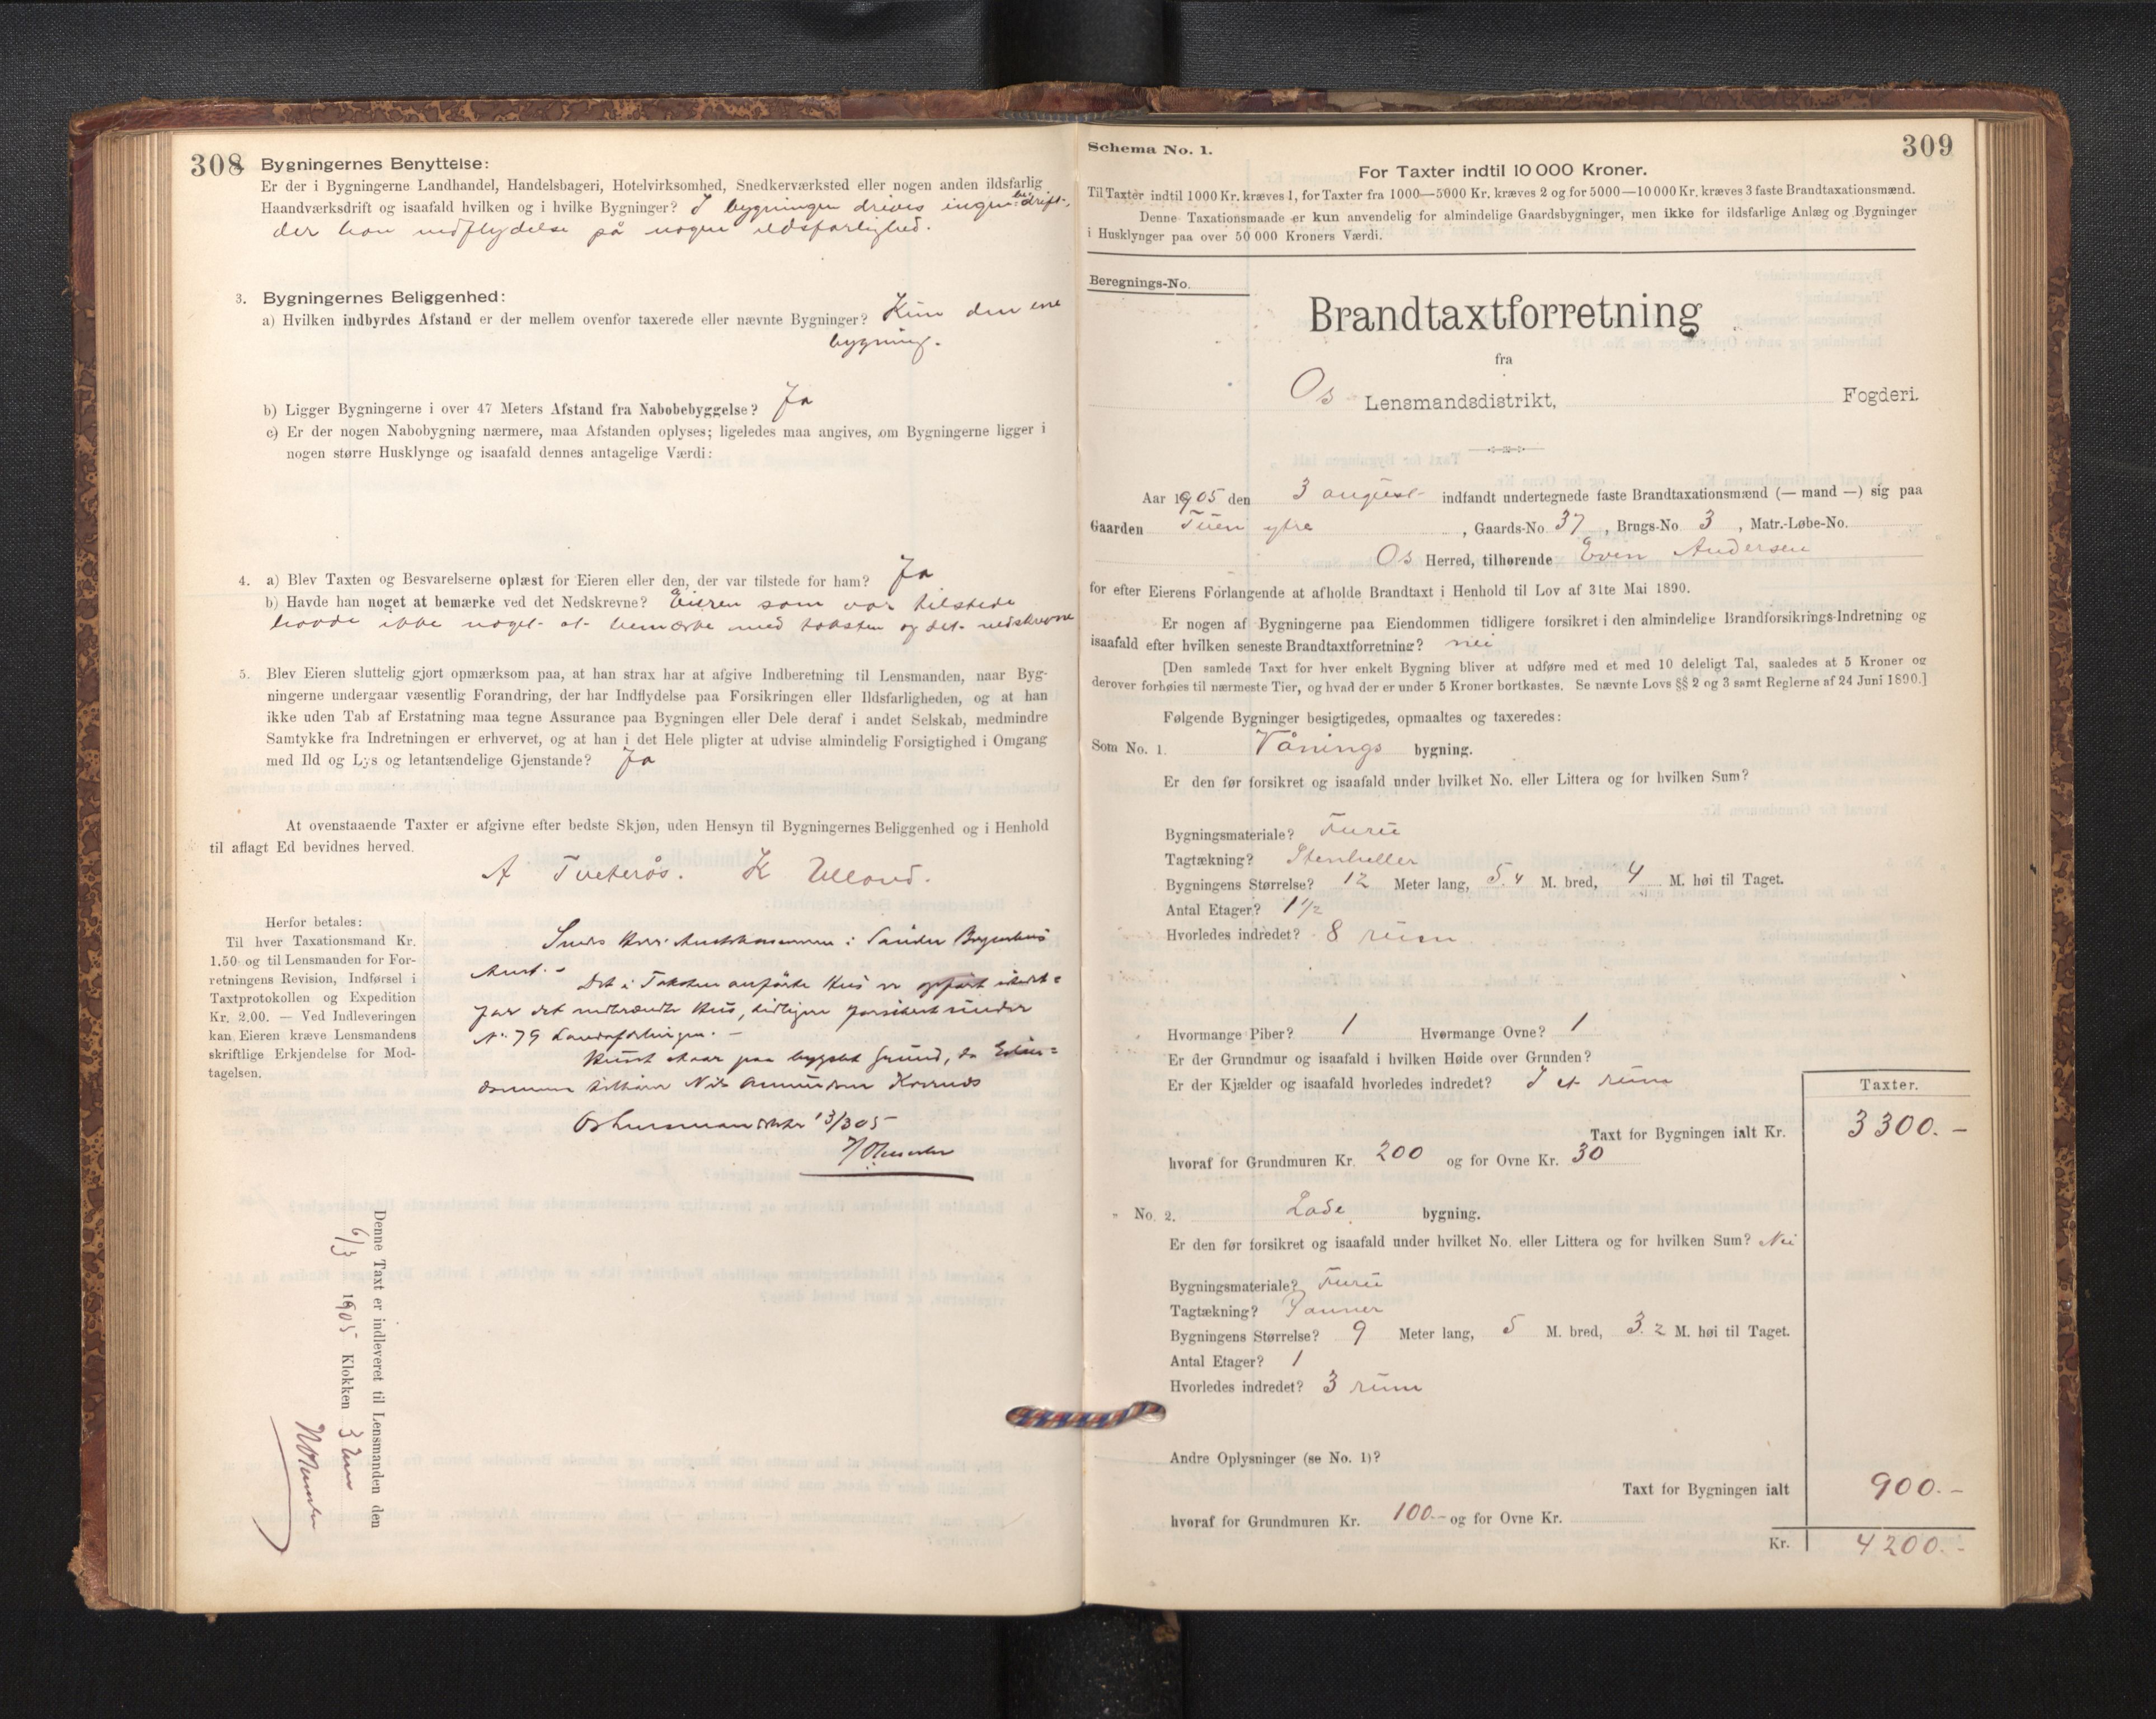 308
Bygningernes Benyttelse:
Er der i Bygningerne Landhandel, Handelsbageri, Hotelvirksomhed, Snedkerværksted eller nogen anden ildsfarlig
Haandværksdrift og isaafald hvilken og i hvilke Bygninger? I bygningen drives ingen bedrift,
der han indflydelse på nogen ildsfarlighed.
3. Bygningernes Beliggenhed:
a) Hvilken indbyrdes Afstand er der mellem ovenfor taxerede eller nævnte Bygninger? Kun den ene
bygning.
b) Ligger Bygningerne i over 47 Meters Afstand fra Nabobebyggelse? Ja
c) Er der nogen Nabobygning nærmere, maa Afstanden oplyses; ligeledes maa angives, om Bygningerne ligger i
nogen større Husklynge og isaafald dennes antagelige Værdi:
4. a) Blev Taxten og Besvarelserne oplæst for Eieren eller den, der var tilstede for ham? Ja
b) Havde han noget at bemærke ved det Nedskrevne? Eieren som var tilstede
havde ikke noget at bemærke med taksten og det nedskrevne
5. Blev Eieren sluttelig gjort opmærksom paa, at han strax har at afgive Indberetning til Lensmanden, naar Byg-
ningerne undergaar væsentlig Forandring, der har Indflydelse paa Forsikringen eller Ildsfarligheden, og at han
ikke uden Tab af Erstatning maa tegne Assurance paa Bygningen eller Dele deraf i andet Selskab, medmindre
Samtykke fra Indretningen er erhvervet, og at han i det Hele pligter at udvise almindelig Forsigtighed i Omgang
med Ild og Lys og letantændelige Gjenstande? Ja
At ovenstaaende Taxter er afgivne efter bedste Skjøn, uden Hensyn til Bygningernes Beliggenhed og i Henhold
til aflagt Ed bevidnes herved.
A Tveterås. K Ulland.
Herfor betales:
Til hver Taxationsmand Kr.
1.50 og til Lensmanden for For-
retningens Revision, Indførsel i
Taxtprotokollen og Expedition
Kr. 2.00. — Ved Indleveringen
kan Eieren kræve Lensmandens
skriftlige Erkjendelse for Mod-
tagelsen.
Sendes Herr Amtskassereren i Søndre Bergenhus
Amt. -
Det i Taksten anførte Hus er opført istedet=
for det nedbrændte Hus, tidligere forsikret under
No 79
Huset staar paa bygslet Grund, da Eien=
dommen tilhører Nils
Os Lensmand 13/3 05
Denne Taxt er indleveret til Lensmanden den
6/3 1905 Klokken 3
309
Schema No. 1.
For Taxter indtil 10 000 Kroner.
Til Taxter indtil 1000 Kr. kræves 1, for Taxter fra 1000—5000 Kr. kræves 2 og for 5000—10 000 Kr. kræves 3 faste Brandtaxationsmænd.
Denne Taxationsmaade er kun anvendelig for almindelige Gaardsbygninger, men ikke for ildsfarlige Anlæg og Bygninger
i Husklynger paa over 50 000 Kroners Værdi.
Beregnings-No.
Brandtaxtforretning
fra
Os Lensmandsdistrikt, Fogderi.
Aar 1905 den 3 august indfandt undertegnede faste Brandtaxationsmænd (— mand —) sig paa
Gaarden Tuen ytre, Gaards-No 37, Brugs-No. 3, Matr.-Løbe-No.
Os Herred, tilhørende Even Andersen
for efter Eierens Forlangende at afholde Brandtaxt i Henhold til Lov af 31te Mai 1890.
Er nogen af Bygningerne paa Eiendommen tidligere forsikret i den almindelige Brandforsikrings-Indretning og
isaafald efter hvilken seneste Brandtaxtforretning? nei
[Den samlede Taxt for hver enkelt Bygning bliver at udføre med et med 10 deleligt Tal, saaledes at 5 Kroner og
derover forhøies til nærmeste Tier, og hvad der er under 5 Kroner bortkastes. Se nævnte Lovs §§ 2 og 3 samt Reglerne af 24 Juni 1890.]
Følgende Bygninger besigtigedes, opmaaltes og taxeredes:
Som No. 1. Vånings bygning.
Er den før forsikret og isaafald under hvilket No. eller Littera og for hvilken Sum?
Bygningsmateriale? Furu
Tagtækning? Stenheller
Bygningens Størrelse? 12 Meter lang, 5.4 M. bred, 4 M. høi til Taget.
Antal Etager? 1 1/2
Hvorledes indredet? 8 rum
Hvormange Piber? 1 Hvormange Ovne? 1
Er der Grundmur og isaafald i hvilken Høide over Grunden?
Er der Kjælder og isaafald hvorledes indredet? I et rum
Taxter.
Taxt for Bygningen ialt Kr. 3300.-
hvoraf for Grundmuren Kr. 200 og for Ovne Kr. 30
" No. 2. Lade bygning.
Er den før forsikret og isaafald under hvilket No. eller Littera og for hvilken Sum? Nei
Bygningsmateriale? Furu
Tagtækning? Panner
Bygningens Størrelse? 9 Meter lang, 5 M. bred, 3.2 M. høi til Taget.
Antal Etager? 1
Hvorledes indredet? 3 rum
Andre Oplysninger (se No. 1)?
Taxt for Bygningen ialt 900.-
hvoraf for Grundmuren Kr. 100.- og for Ovne Kr.
Kr. 4200.-